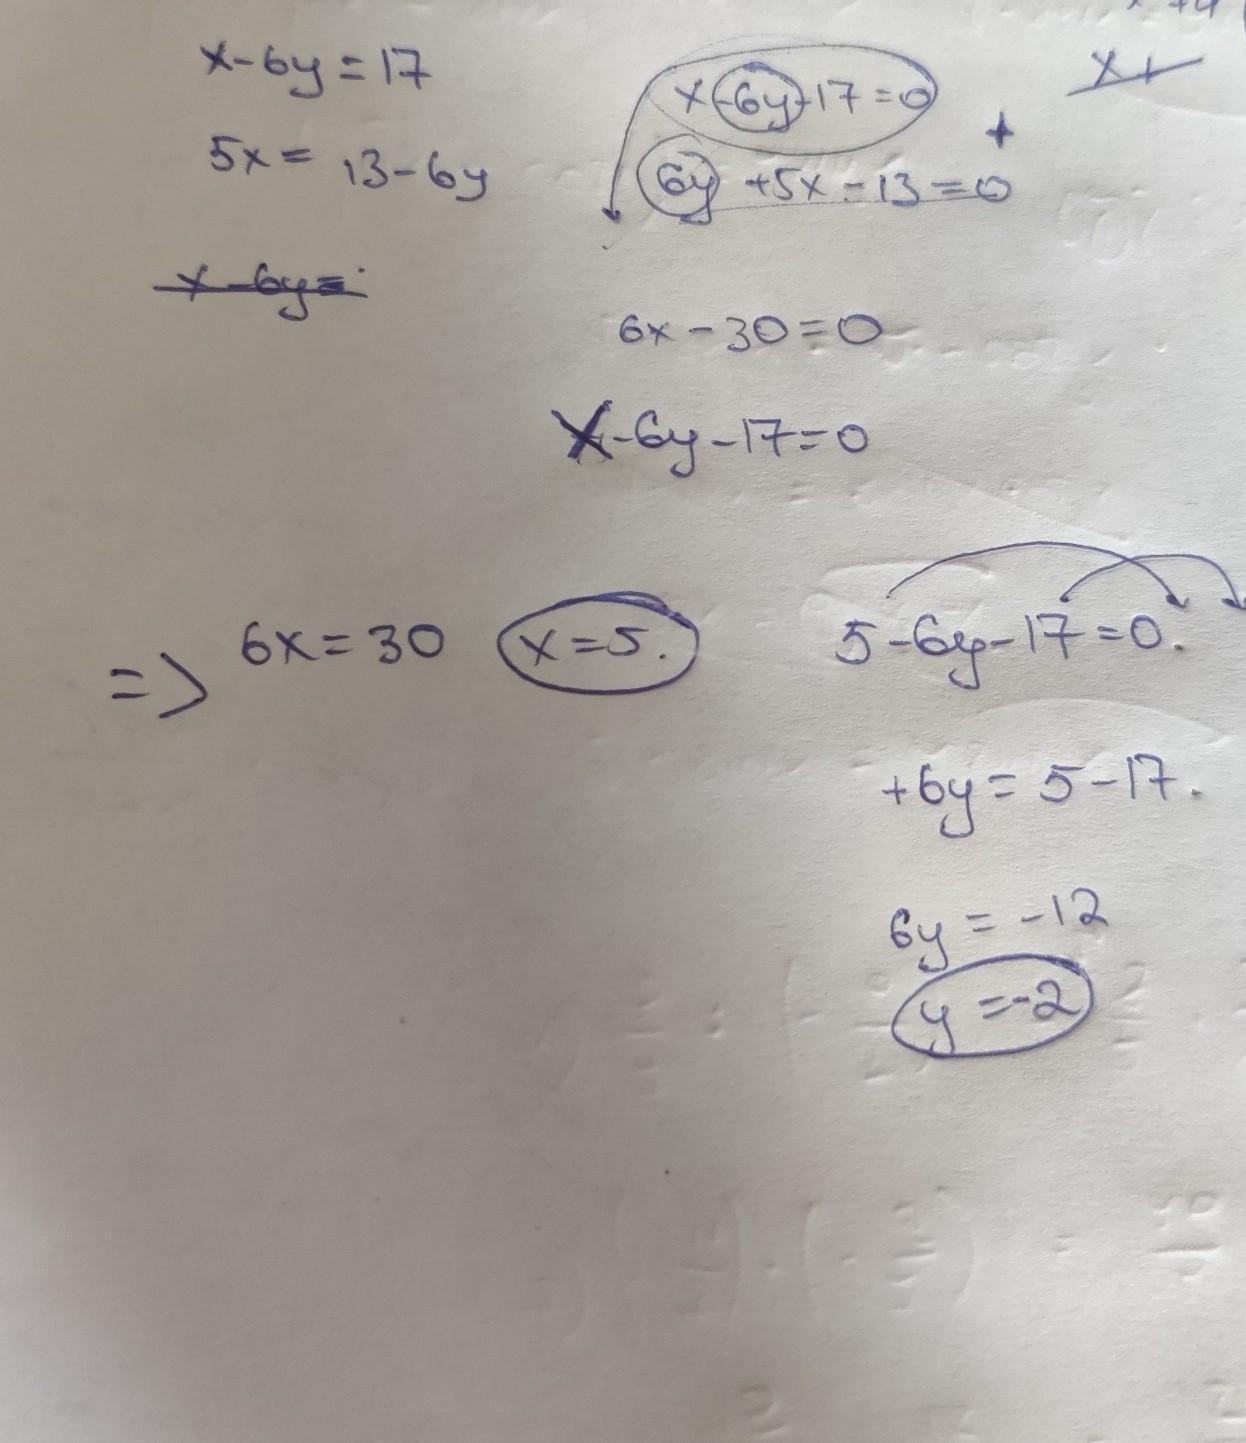 x-6y=17
5x= 13-6y
x-6y=
x-6y-17=0
+
6y+5x-13=0
6x-30=0
x-6y-17=0
=> 6x=30 x=5.
5-6y-17=0.
+6y=5-17.
6y=-12
y=-2